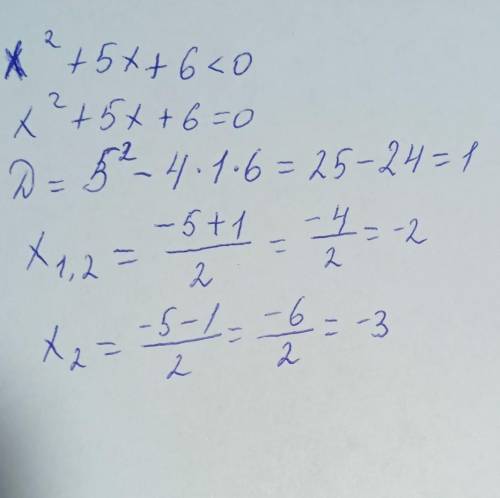 x² + 5x + 6 < 0
x² + 5x + 6 = 0
D = 5² - 4 · 1 · 6 = 25 - 24 = 1
x₁,₂ = (-5+1)/2 = -4/2 = -2
x₂ = (-5-1)/2 = -6/2 = -3